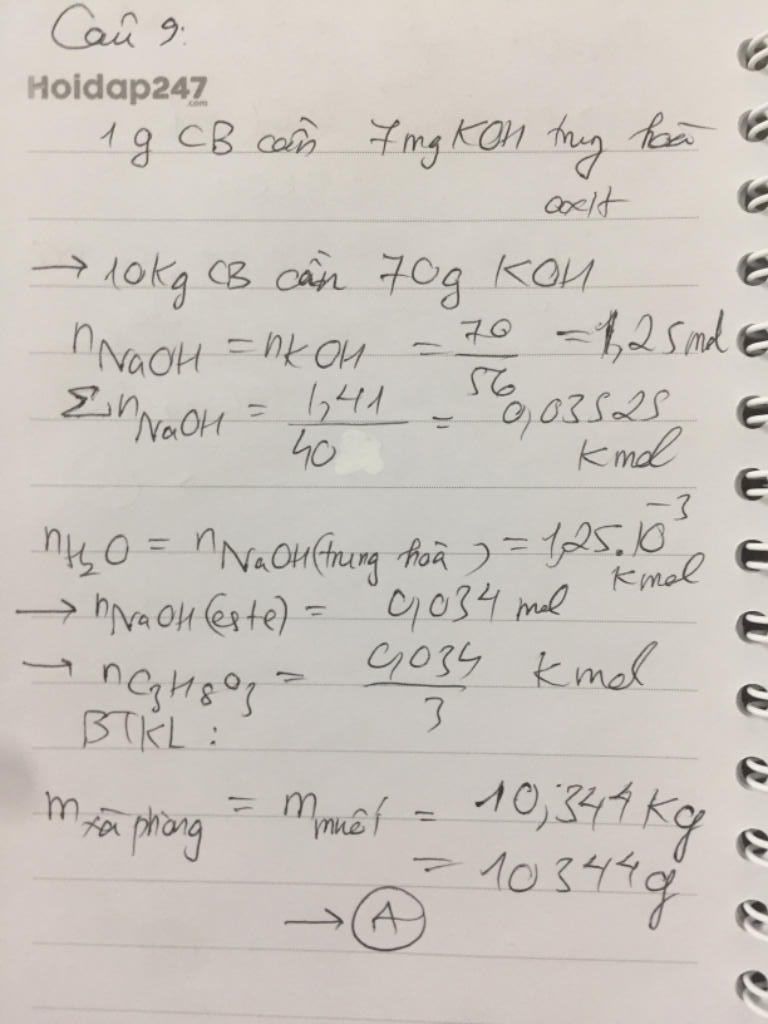 Câu 9:
Hoidap247
.com
1g CB cần 7mg KOH trung hoà
axit
→ 10Kg CB cần 70g KOH
nNaOH = nKOH = 70/56 = 1,25 mol
ΣnNaOH = 1,41/40 = 0,03525
Kmol
nH2O = nNaOH(trung hoà) = 1,25.10^-3
Kmol
→ nNaOH(este) = 0,034 mol
→ nC3H8O3 = 0,034/3 Kmol
BTKL :
m xà phòng = m muối = 10,344 Kg
= 10344g
→ A